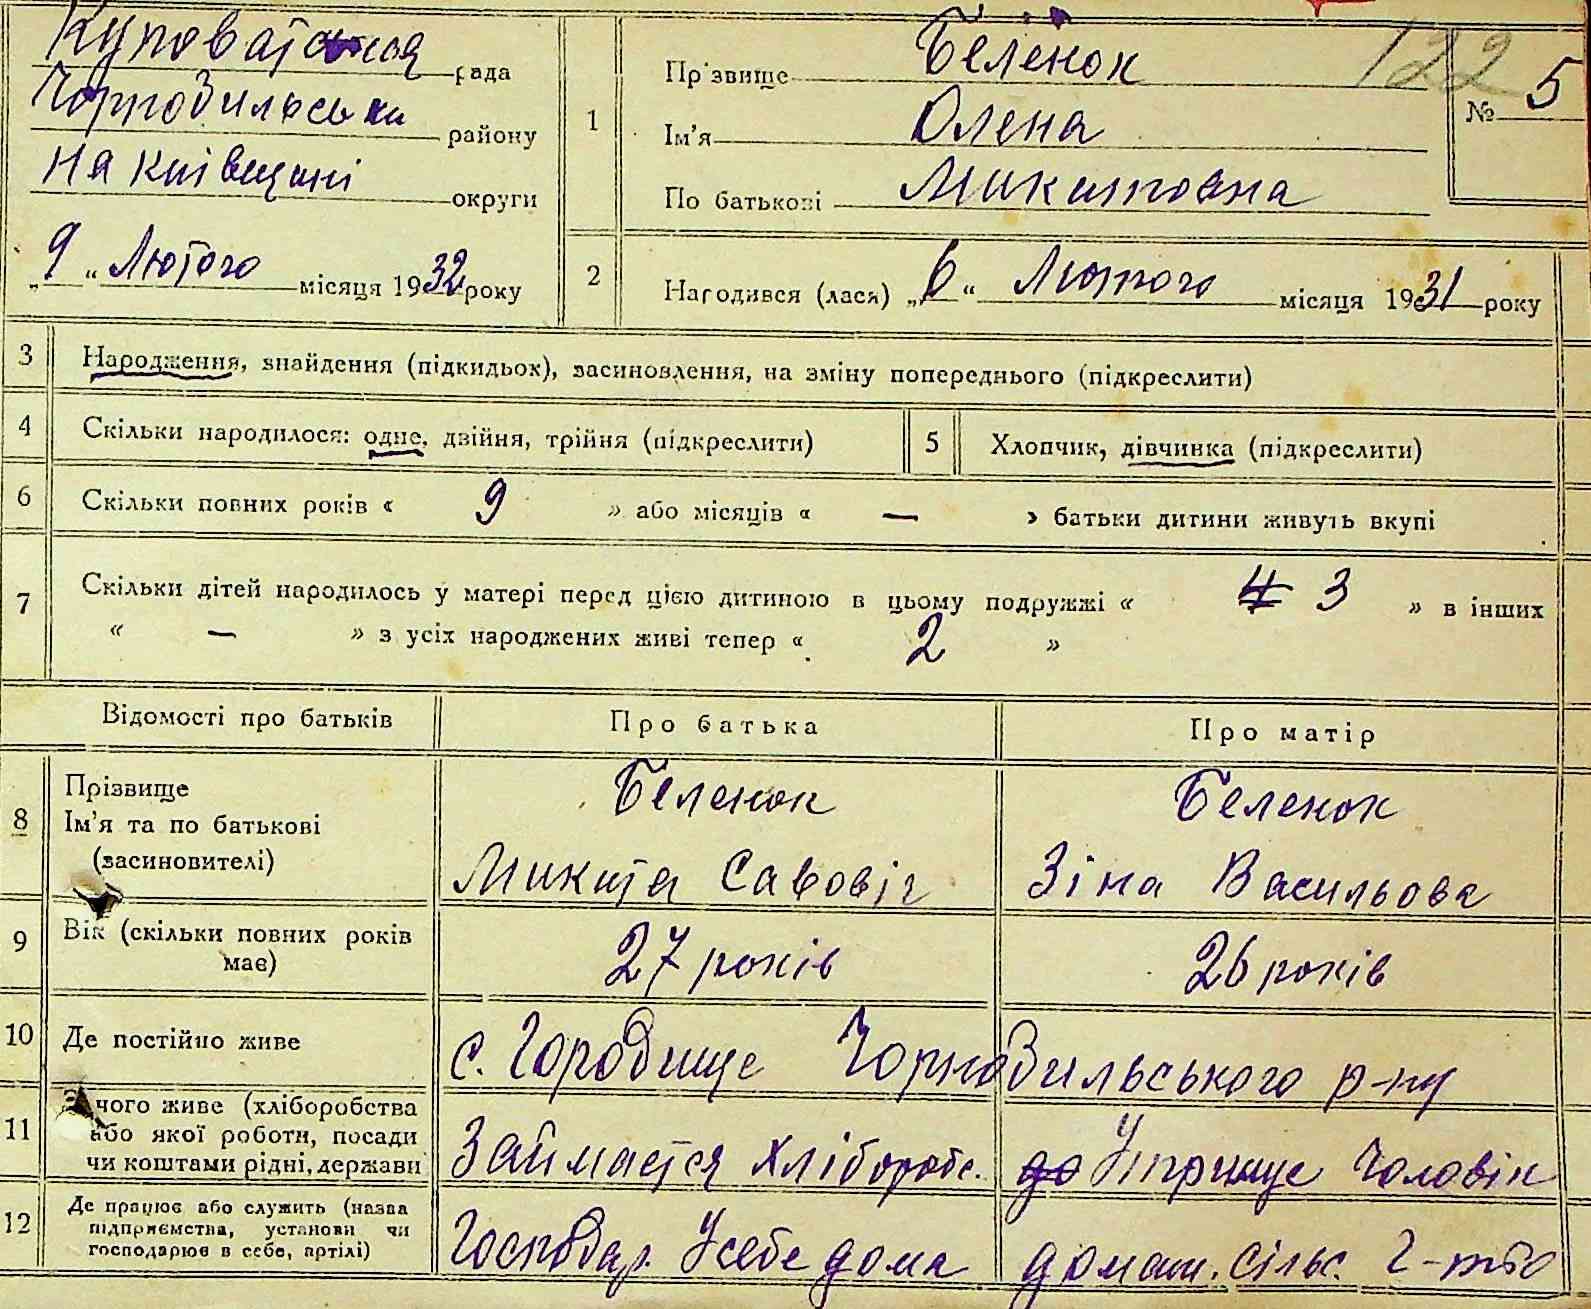 Куповатська рада
Чорнобильськи району
На київщині округи
„9“ Лютого місяця 1932 року
1
Прізвище Беленок
Ім'я Олена
По батькові Микитовна
122
№ 5
2
Народився (лася) „6“ Лютого місяця 1931 року
3 Народження, знайдення (підкидьок), засиновлення, на зміну попереднього (підкреслити)
4 Скільки народилося: одне, двійня, трійня (підкреслити)
5 Хлопчик, дівчинка (підкреслити)
6 Скільки повних років « 9 » або місяців « — » батьки дитини живуть вкупі
7 Скільки дітей народилось у матері перед цією дитиною в цьому подружжі « 4 3 » в інших
« — » з усіх народжених живі тепер « 2 »
Відомості про батьків Про батька Про матір
8 Прізвище
Ім'я та по батькові
(засиновителі)
Беленок
Микита Савовіч
Беленок
Зіна Васильова
9 Вік (скільки повних років
має)
27 років
26 років
10 Де постійно живе
с. Городище Чорнобильського р-ну
11 З чого живе (хліборобства
або якої роботи, посади
чи коштами рідні, держави
Займаєтся хліборобс.
до Утримує Чоловік
12 Де працює або служить (назва
підприємства, установи чи
господарює в себе, артілі)
Господар. Усебе дома
домаш. сільс. г-тво